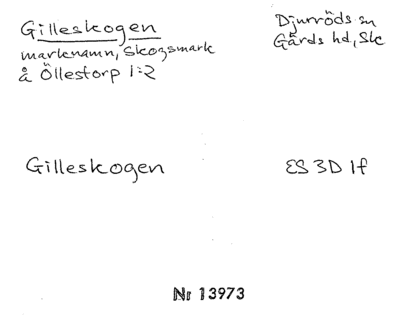 Gilleskogen
Djurröds sn
marknamn, Skogsmark
Gärds hd, Sk
å Öllestorp 1:2
Gilleskogen
ES 3D 1f
Nr 13973